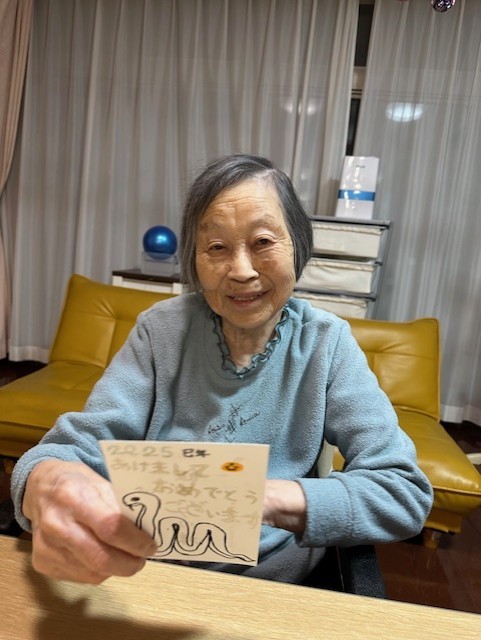 2225 巳年
あけまして
おめでとう
ございます